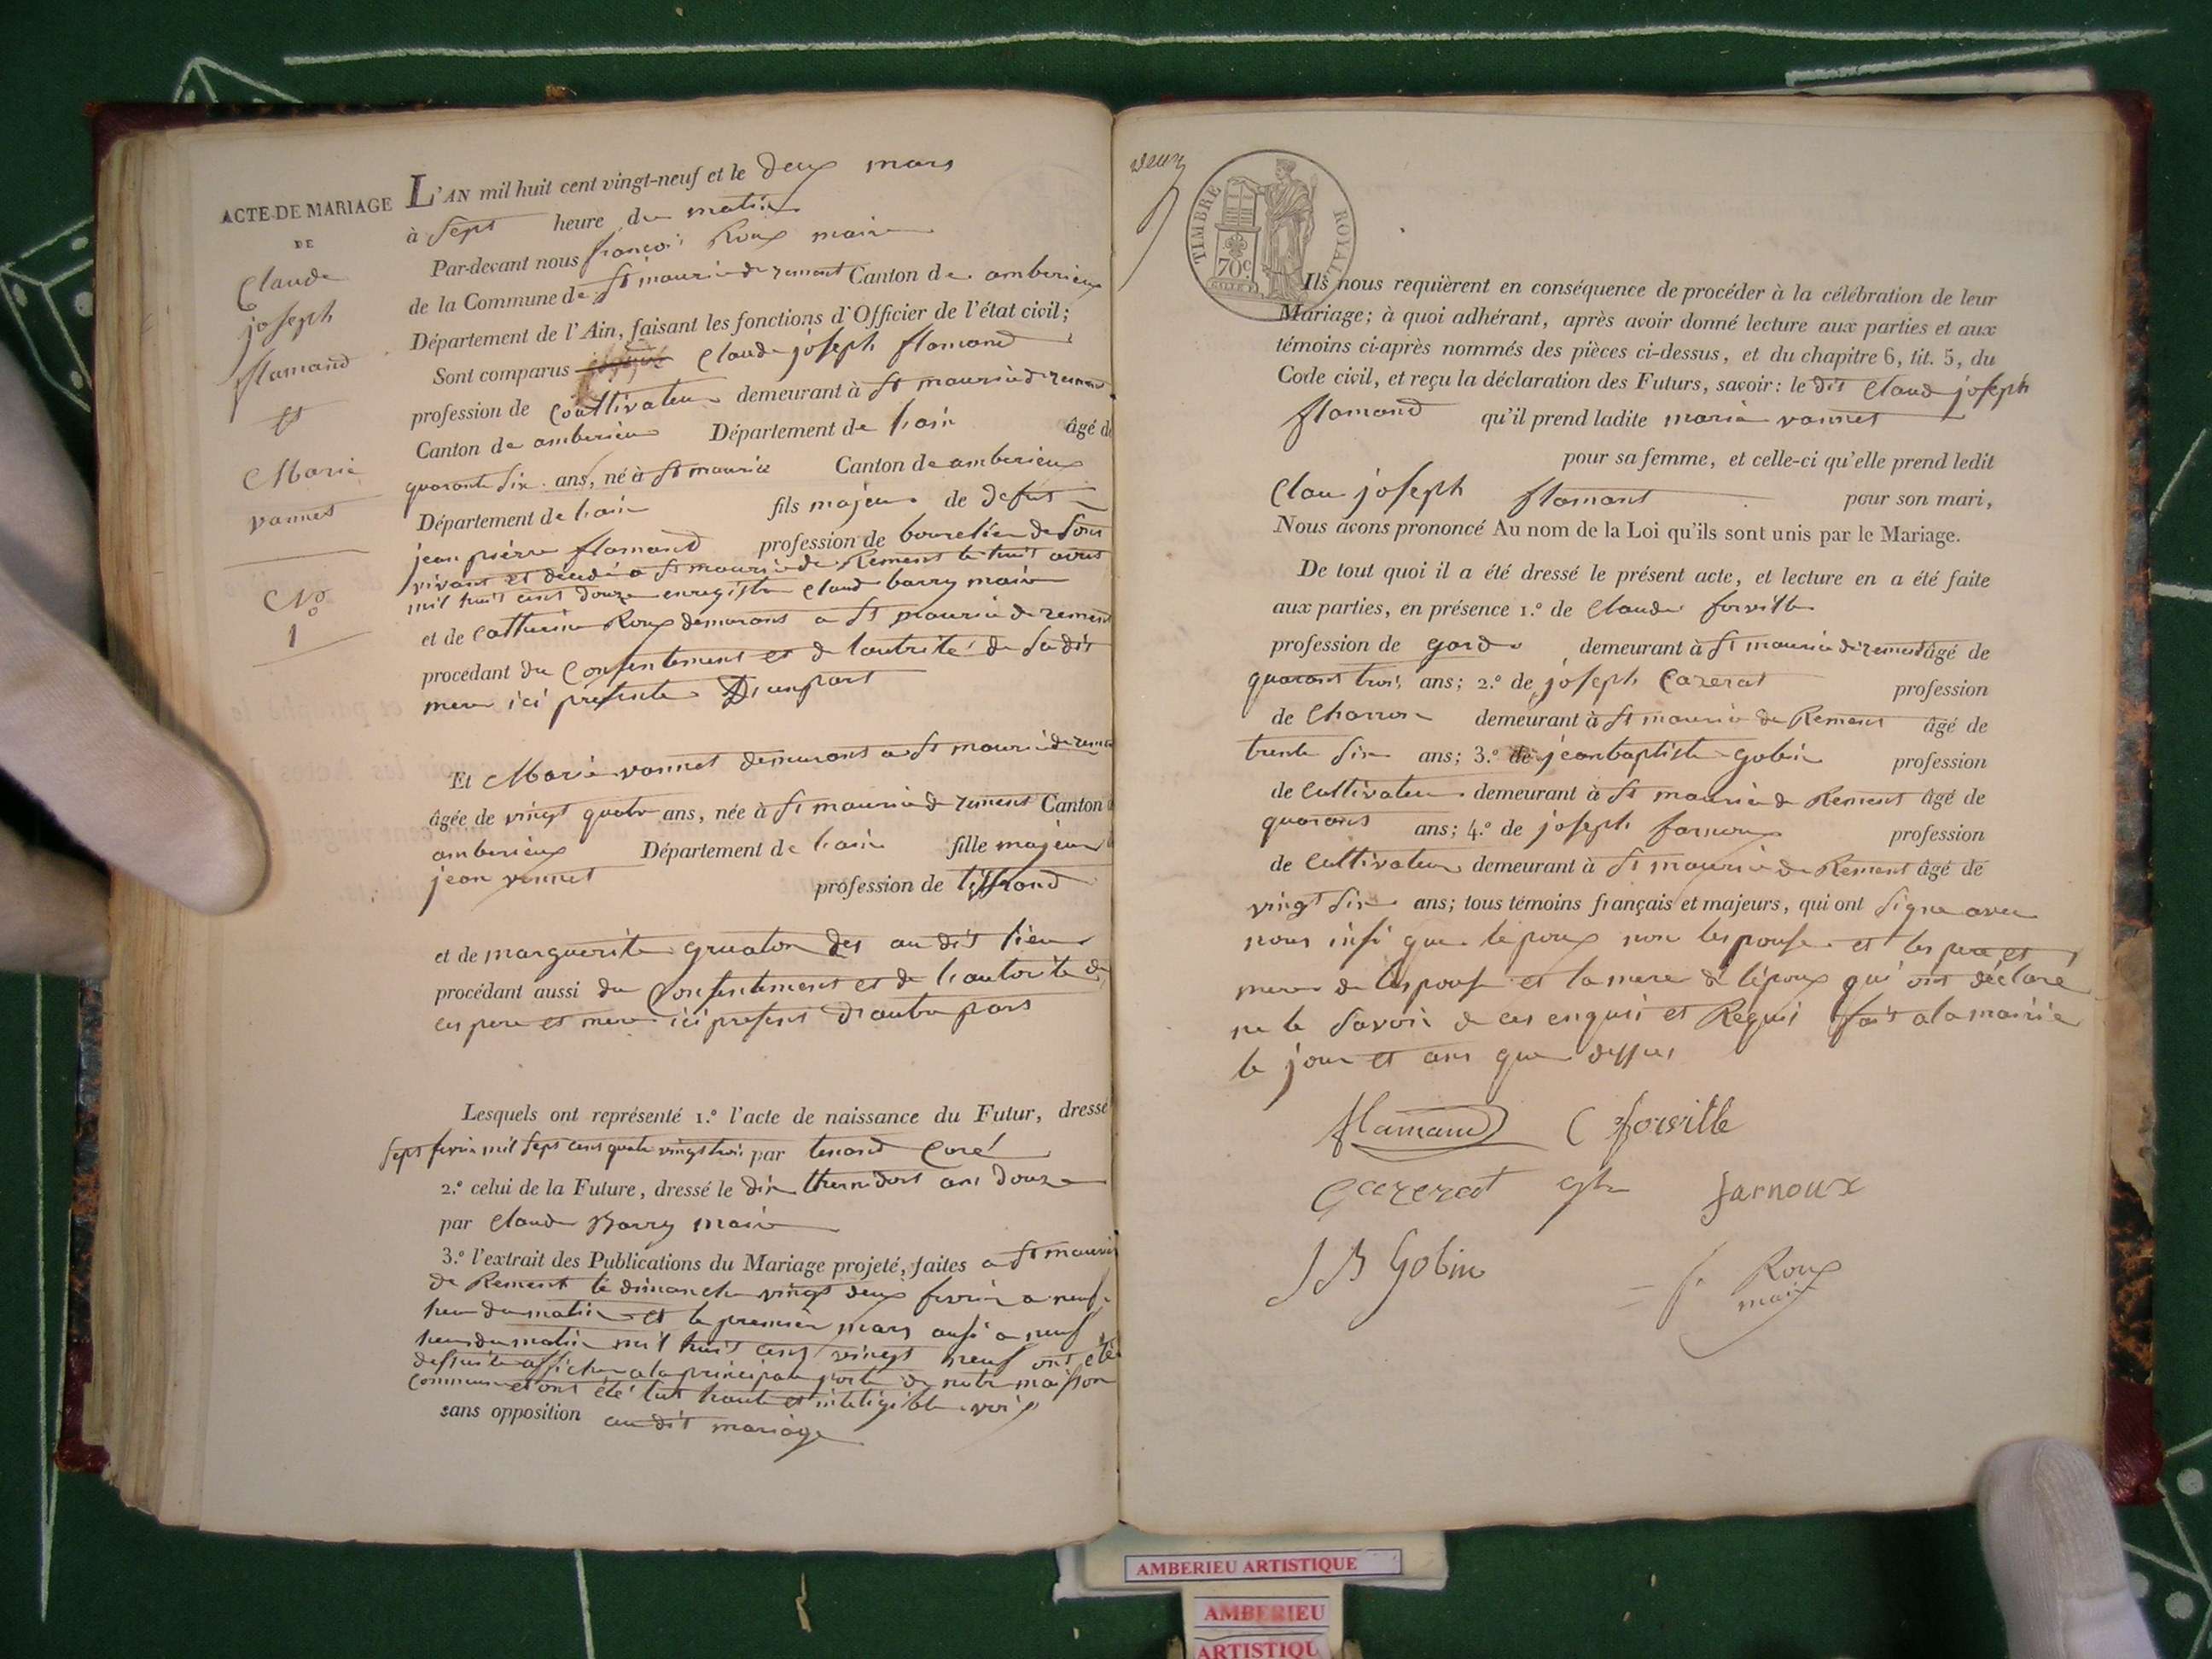 ACTE DE MARIAGE
DE
Claude
joseph
flamand
et
Marie
vannet
No
1
L'AN mil huit cent vingt-neuf et le deux mars
à sept heure du matin
Par-devant nous françoi Roux maire
de la Commune de St mauri de rement Canton de amberieux
Département de l'Ain, faisant les fonctions d'Officier de l'état civil;
Sont comparus Claude joseph flamand
profession de Coultivateur demeurant à St mauri d remens
Canton de amberieux Département de lain âgé de
quarante six ans, né à St maurice Canton de amberieux
Département de lain fils majeur de defut
jean pierre flamand profession de bourelier de sons
vivant et decedé a St mauri de Remens le huit avril
mil huit cens douze enregistre Claud barry maire
et de Catherine Roux demurant a St mauri de remens
procédant du Consentement et de lautrité de sa dit
mere ici presente D'unpart
Et Marie vannet demurant a St mauri de remens
âgée de vingt quatre ans, née à St mauri d remens Canton d
amberieux Département de lain fille majeur d
jean vannet profession de tissrand
et de marguerite gruaton des au dit lieu
procédant aussi du Consentement et de l'autorite de
ces pere et mere ici present D'autre part
Lesquels ont représenté 1.º l'acte de naissance du Futur, dressé
sept fevrie mil sept cens quatre vingt troi par tenand Curé
2.º celui de la Future, dressé le dix thermidort ans douze
par Claude Barry maire
3.º l'extrait des Publications du Mariage projeté, faites a St mauri
de Remens le dimanche vingt deux fevrier a neuf
heur du matin et le premier mars ausi a neuf
heur du matin mil huit cens vingt neuf ont été
desuite afficher a la principale porte de notre maison
Commune et ont été lut haute et inteligible voix
sans opposition au dit mariage
deux
TIMBRE ROYAL
70c
Ils nous requièrent en conséquence de procéder à la célébration de leur
Mariage; à quoi adhérant, après avoir donné lecture aux parties et aux
témoins ci-après nommés des pièces ci-dessus, et du chapitre 6, tit. 5, du
Code civil, et reçu la déclaration des Futurs, savoir: le dit Claud joseph
flamand qu'il prend ladite maria vannet
pour sa femme, et celle-ci qu'elle prend ledit
Clau joseph flamant pour son mari,
Nous avons prononcé Au nom de la Loi qu'ils sont unis par le Mariage.
De tout quoi il a été dressé le présent acte, et lecture en a été faite
aux parties, en présence 1.º de Claude forville
profession de garde demeurant à St mauri de remens âgé de
quarant troi ans; 2.º de joseph Cazerat profession
de Charron demeurant à St mauri de Remens âgé de
trente six ans; 3.º de jeanbaptiste gobin profession
de Cultivateur demeurant à St mauri de Remens âgé de
quarant ans; 4.º de joseph farnoux profession
de Cultivateur demeurant à St mauri de Remens âgé de
vingt six ans; tous témoins français et majeurs, qui ont signe avec
nous insi que lepoux non lespouse et les pere et
mere de lespouse et la mere de lépoux qui ont déclaré
ne le savoir de ces enquis et Requis fait a la mairie
le jour et ans que dessus
flamand C forville
Cazerat farnoux
J B Gobin
f. Roux
maire
AMBERIEU ARTISTIQUE
AMBERIEU
ARTISTIQU